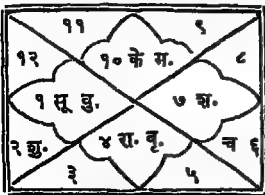 ११ ९
१२ १० के म. ८
१ सू वु. ७ श.
२ शु. ४ रा. वृ. च ६
३ ५